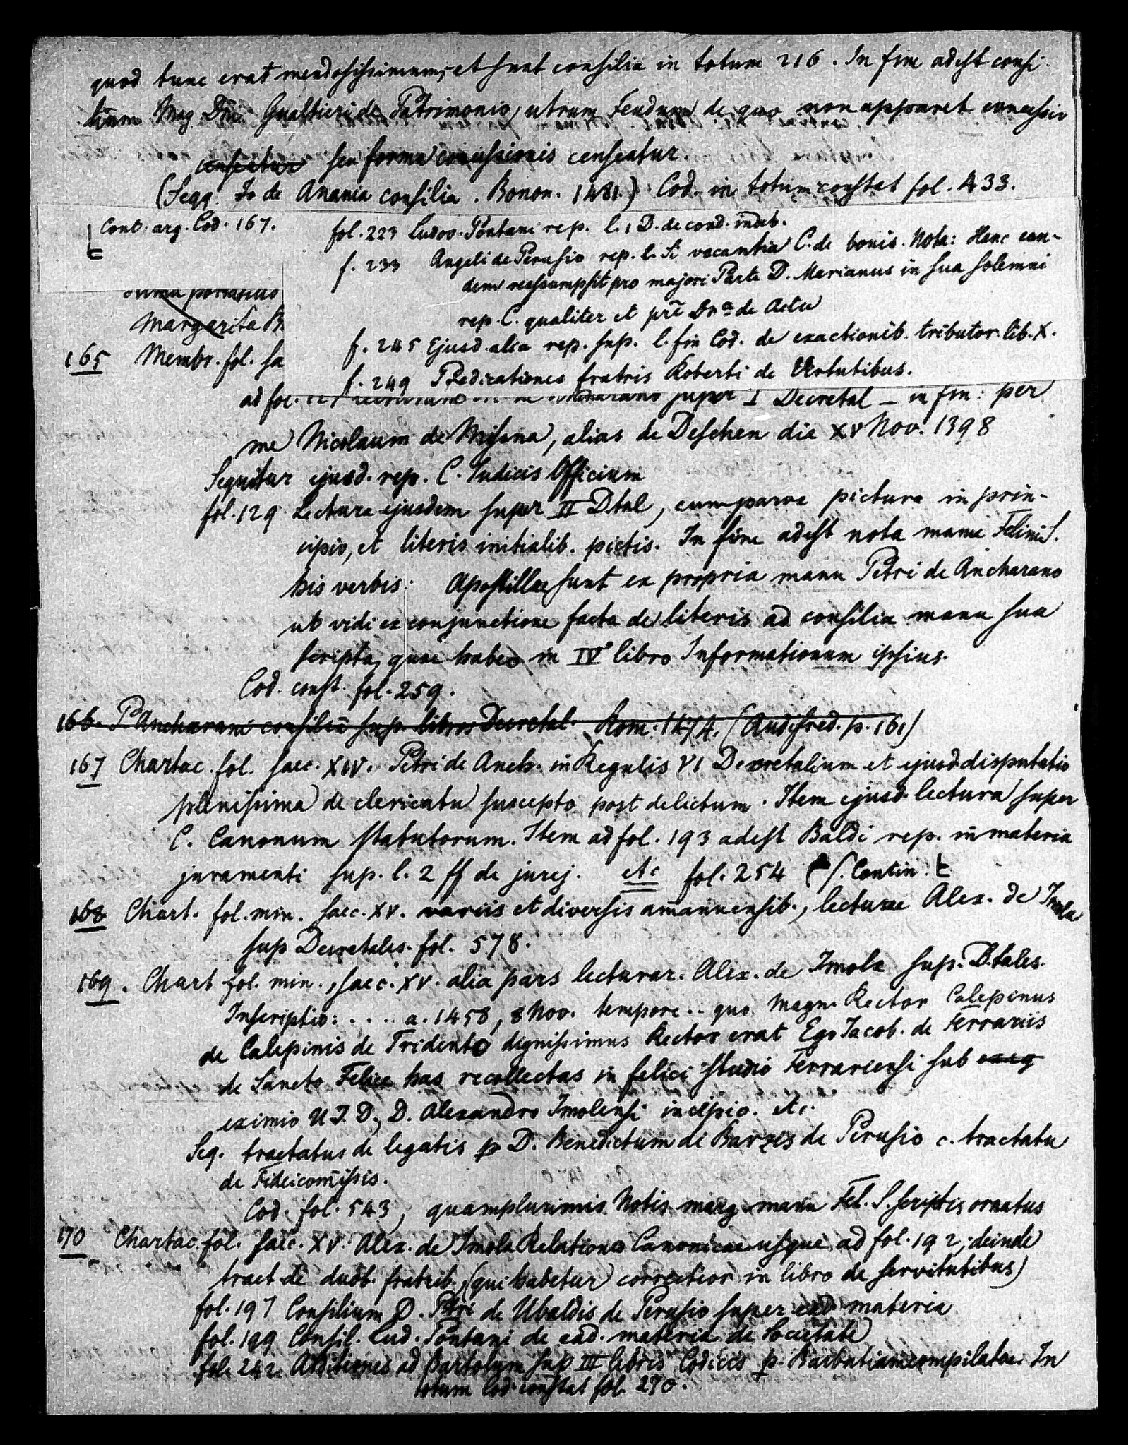 quod tunc erat mendosissimum, et sunt consilia in totum 216. In fine adest consi-
lium Mag. Dni. Gualtieri de Patrimonio, utrum feudum de quo non appareret concessio
censeatur seu forma concessionis censeatur.
(Seqq. Jo de Anania consilia. Bonon. 1481.) Cod. in totum constat fol. 433.
Cont. arg. Cod. 167.
fol. 223 Ludov. Pontani rep. l. 1 D. de cond. indeb.
f. 233 Angeli de Perusio rep. l. Si vacantia C. de bonis. Nota: Hanc ean-
dem reassumpsit pro majori Parte D. Marianus in sua solemni
rep. C. qualiter et de Accu
f. 245 Ejusd. alia rep. sup. l. fin Cod. de exactionib. tributor. lib. X.
f. 249 Predicationes fratris Roberti de Virtutibus.
Margarita
165 Membr. fol. sa
ad fol. super I Decretal — in fin: per
me Nicolaum de Misena, alias de Deschen die XV Nov. 1398
Sequitur ejusd. rep. C. Iudicis Officium
fol. 129 Lectura ejusdem super II Dtal, cum parva pictura in prin-
cipio, et literis initialib. pictis. In fine adest nota manu Felini S.
his verbis: Apostillae sunt ex propria manu Petri de Ancharano
ut vidi ex conjunctione facta de literis ad consilia manu sua
scripta, quae habeo in IV° libro Informationum ipsius.
Cod. const. fol. 259.
166. P Ancharani consilia sup. libros Decretal. Rom. 1474. (Audifred. p. 161)
167 Chartac. fol. saec. XIV. Petri de Anch. in Regulis VI Decretalium et ejusd disputatio
plenissima de clericatu suscepto post delictum. Item ejusd. lectura super
C. Canonum statutorum. Item ad fol. 193 adest Baldi rep. in materia
juramenti sup. l. 2 ff de jurej. etc fol. 254 (S. Contin.
168 Chart. fol. min. saec. XV. variis et diversis amanuensib., lecturae Alex. de Imola
sup Decretales. fol. 578.
169. Chart fol. min., saec. XV. alia pars lecturar. Alex. de Imola sup. Dtales.
Inscriptio: . . . . a. 1458, 8 Nov. tempore .. quo Magn. Rector Calepinus
de Calepinis de Tridento dignissimus Rector erat Ego Jacob. de Ferrariis
de Sancto Felice has recollectas in felici Studio Ferrariensi sub
eximio U. J. D, D. Alexandro Imolensi incipio. etc.
Seq. tractatus de legatis p D. Benedictum de Barzis de Perusio c. tractatu
de Fideicomissis.
Cod. fol. 543, quamplurimis Notis marg. manu Fel. S. scriptis ornatus
170 Chartac. fol. saec. XV. Alex. de Imola Relationes Canonicae usque ad fol. 192, deinde
tract de duob. fratrib. (qui habetur correctior in libro de servitutibus)
fol. 197 Consilium D. Petri de Ubaldis de Perusio super ead materia
fol. 199 Consil. Lud. Pontani de ead. materia de Societate
fol. 242 Additiones ad Bartolum sup III libris Codicis p. Barbatiam compilatae. In
totum Cod constat fol. 270.